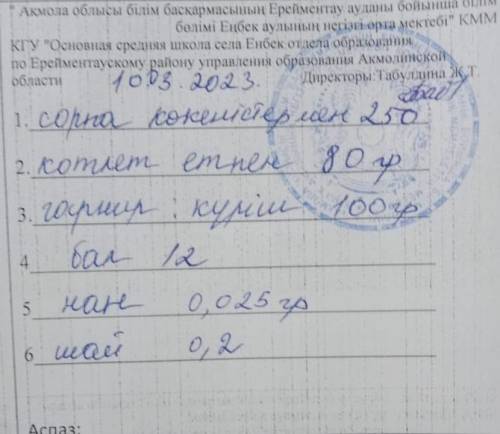 " Акмола облысы білім басқармасының Ерейментау ауданы бойынша білім
бөлімі Еңбек аулының негізгі орта мектебі" КММ
КГУ "Основная средняя школа села Енбек отдела образования
по Ерейментаускому району управления образования Акмолинской
области 10 03. 2023. Директоры: Табулдина Ж.Т.
1. сорпа көкөністермен 250
2. котлет етпен 80 гр
3. гарнир : күріш 100 гр
4 бал 12
5 нан 0,025 гр
6 шай 0,2
Аспаз: